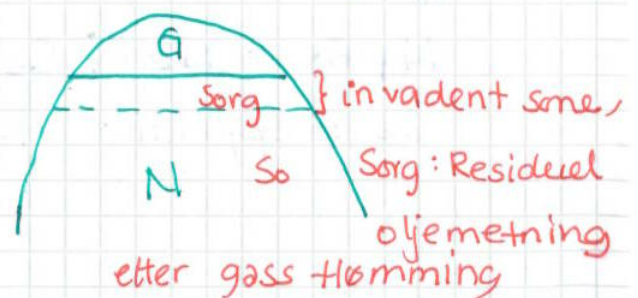 G
Sorg } invadent sone,
N So Sorg : Residuel
oljemetning
etter gass flømming